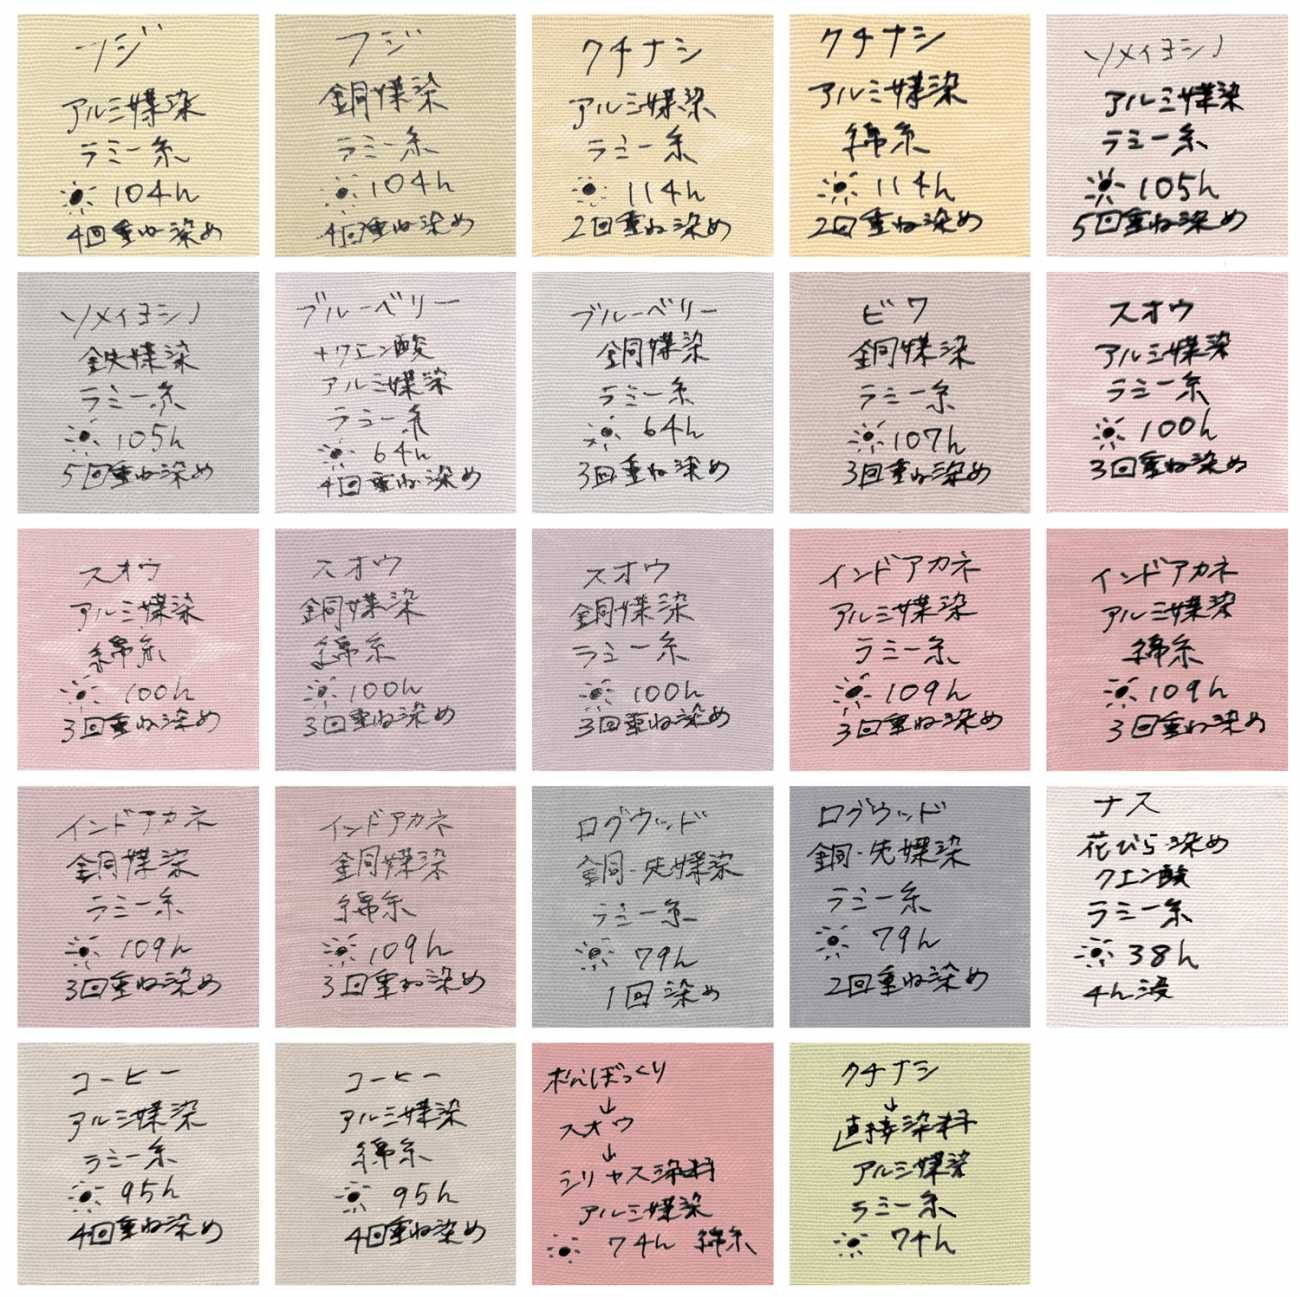 フジ
アルミ媒染
ラミー糸
104h
4回重ね染め
フジ
銅媒染
ラミー糸
104h
4回重ね染め
クチナシ
アルミ媒染
ラミー糸
114h
2回重ね染め
クチナシ
アルミ媒染
綿糸
114h
2回重ね染め
ソメイヨシノ
アルミ媒染
ラミー糸
105h
5回重ね染め
ソメイヨシノ
鉄媒染
ラミー糸
105h
5回重ね染め
ブルーベリー
+クエン酸
アルミ媒染
ラミー糸
64h
4回重ね染め
ブルーベリー
銅媒染
ラミー糸
64h
3回重ね染め
ビワ
銅媒染
ラミー糸
107h
3回重ね染め
スオウ
アルミ媒染
ラミー糸
100h
3回重ね染め
スオウ
アルミ媒染
綿糸
100h
3回重ね染め
スオウ
銅媒染
綿糸
100h
3回重ね染め
スオウ
銅媒染
ラミー糸
100h
3回重ね染め
インドアカネ
アルミ媒染
ラミー糸
109h
3回重ね染め
インドアカネ
アルミ媒染
綿糸
109h
3回重ね染め
インドアカネ
銅媒染
ラミー糸
109h
3回重ね染め
インドアカネ
銅媒染
綿糸
109h
3回重ね染め
ログウッド
銅・先媒染
ラミー糸
79h
1回染め
ログウッド
銅・先媒染
ラミー糸
79h
2回重ね染め
ナス
花びら染め
クエン酸
ラミー糸
38h
4h浸
コーヒー
アルミ媒染
ラミー糸
95h
4回重ね染め
コーヒー
アルミ媒染
綿糸
95h
4回重ね染め
松ぼっくり
↓
スオウ
↓
シリヤス染料
アルミ媒染
74h 綿糸
クチナシ
↓
直接染料
アルミ媒染
ラミー糸
74h